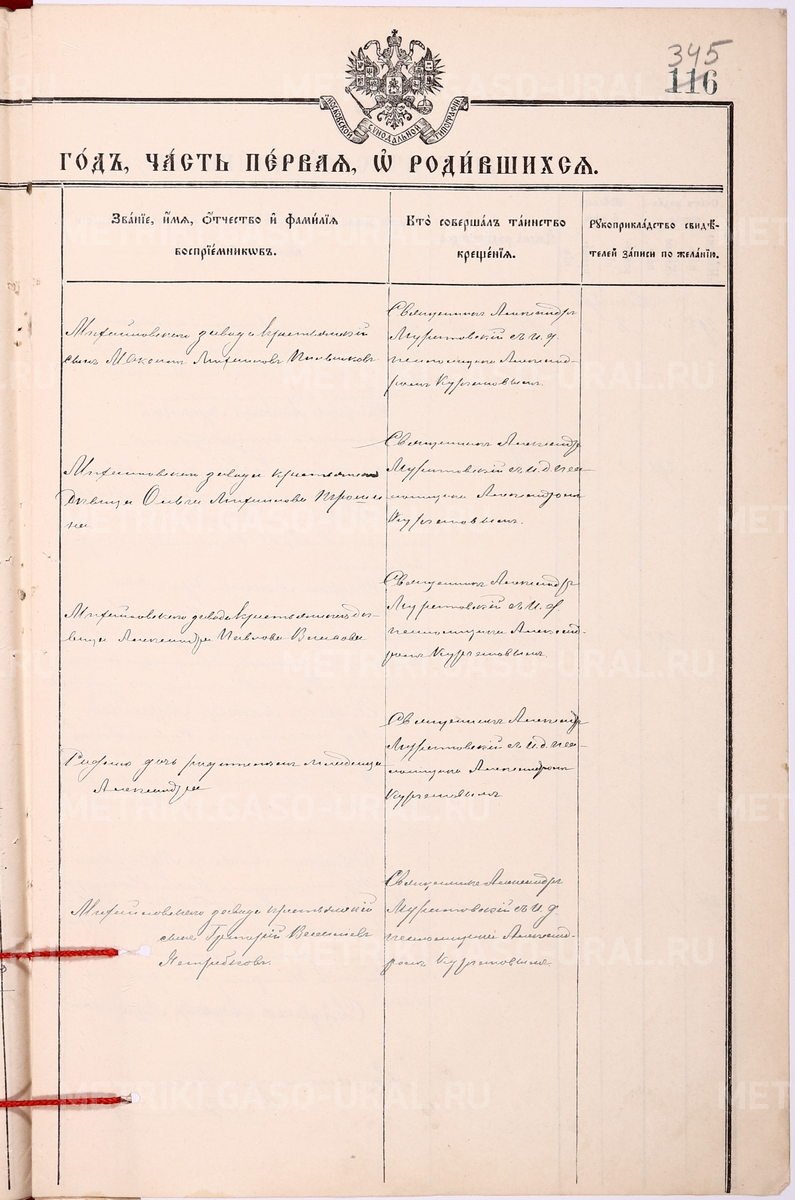 345
116
МОСКОВСКОЙ СѴНОДАЛЬНОЙ ТИПОГРАФІИ
ГО́ДЪ, ЧА́СТЬ ПЕ́РВАЯ, Ѽ РОДИ́ВШИХСЯ.
Зва́нїе, и́мя, ѻ́тчество и фами́лїя
воспрїе́мникѡвъ.
Кто̀ соверша́лъ та́инство
креще́нїя.
Рꙋкоприкла́дство свидѣ́-
телей за́писи по жела́нїю.
Михайловскаго завода крестьянскій
сынъ Максимъ
Священникъ Александръ
Муратовскій съ и. д.
псаломщика Александ-
ромъ Кургановымъ.
Михайловскаго завода крестьянская
дѣвица Ольга
на
Священникъ Александръ
Муратовскій съ и. д. пса-
ломщика Александромъ
Кургановымъ.
Михайловскаго завода крестьянская дѣ-
вица Александра Павлова Власова
Священникъ Александръ
Муратовскій съ и. д.
псаломщика Александ-
ромъ Кургановымъ.
дочь родителей младенца
Александра
Священникъ Александръ
Муратовскій съ и. д. пса-
ломщика Александромъ
Кургановымъ
Михайловскаго завода крестьянскій
сынъ Григорій Васильевъ
Ястребковъ.
Священникъ Александръ
Муратовскій съ и. д.
псаломщика Александ-
ромъ Кургановымъ.
METRIKI.GASO-URAL.RU